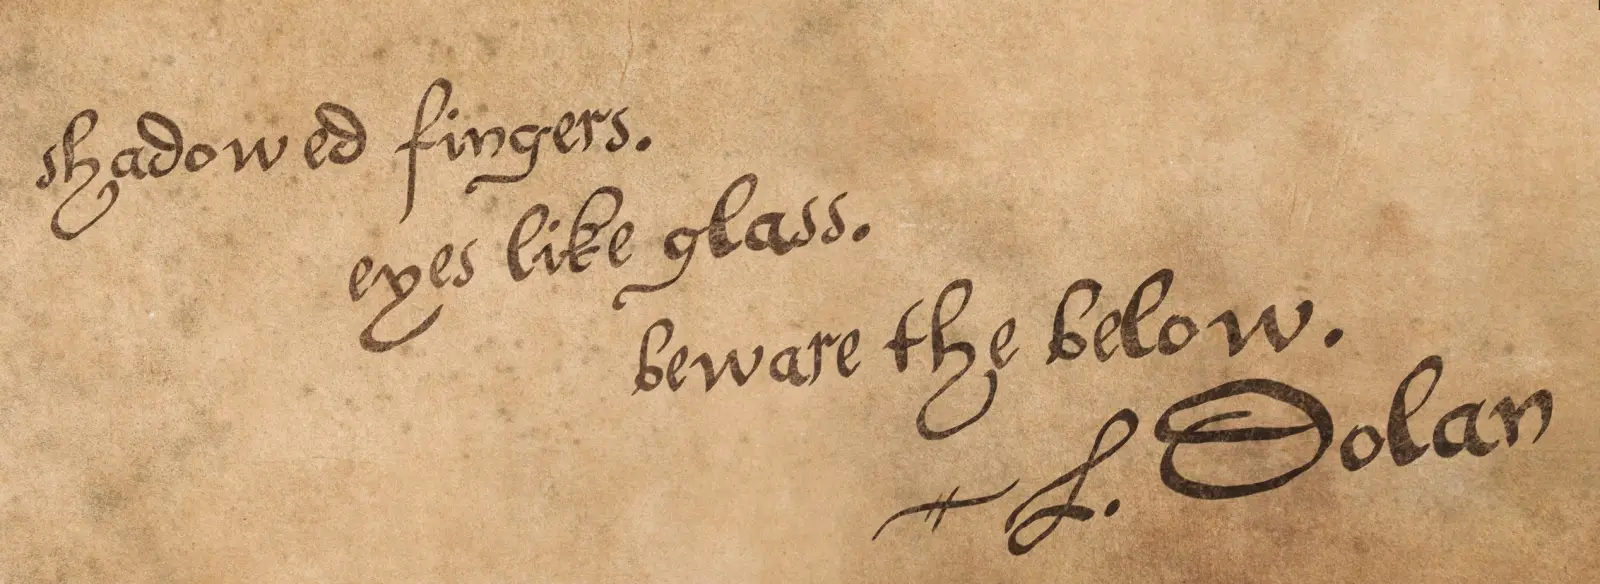 shadowed fingers.
eyes like glass.
beware the below.
L. Dolan